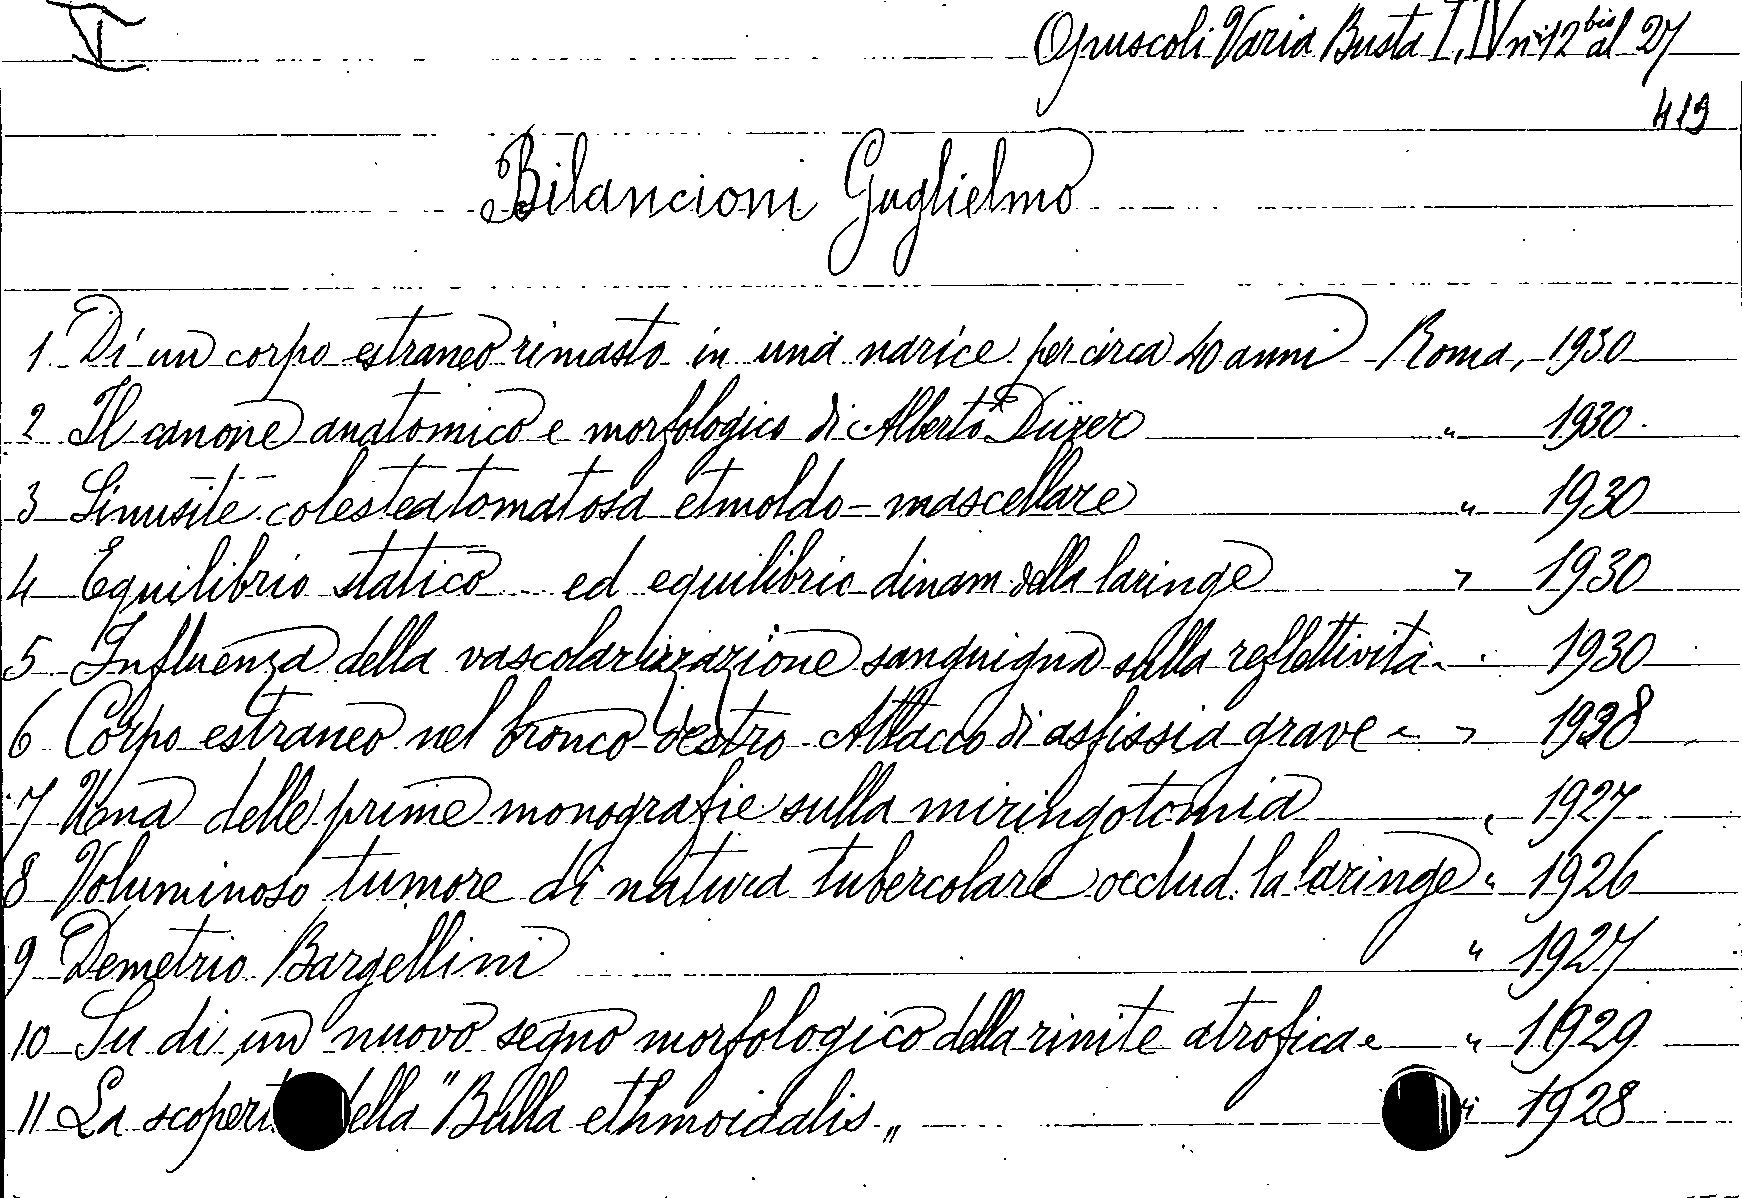 I
Opuscoli Varia Busta I, IV n. 12 bis al 27
419
Bilancioni Guglielmo
1 Di un corpo estraneo rimasto in una narice per circa 40 anni - Roma, 1930
2 Il canone anatomico e morfologico di Alberto Dürer " 1930
3 Sinusite colesteatomatosa etmoldo-mascellare " 1930
4 Equilibrio statico ed equilibrio dinam. della laringe " 1930
5 Influenza della vascolarizzazione sanguigna sulla reflettività 1930
6 Corpo estraneo nel bronco destro Attacco di asfissia grave " 1928
7 Una delle prime monografie sulla miringotomia " 1927
8 Voluminoso tumore di natura tubercolare occlud. la laringe " 1926
9 Demetrio Bargellini " 1927
10 Su di un nuovo segno morfologico della rinite atrofica " 1929
11 La scoperta della "Bulla ethmoidalis„ 1928